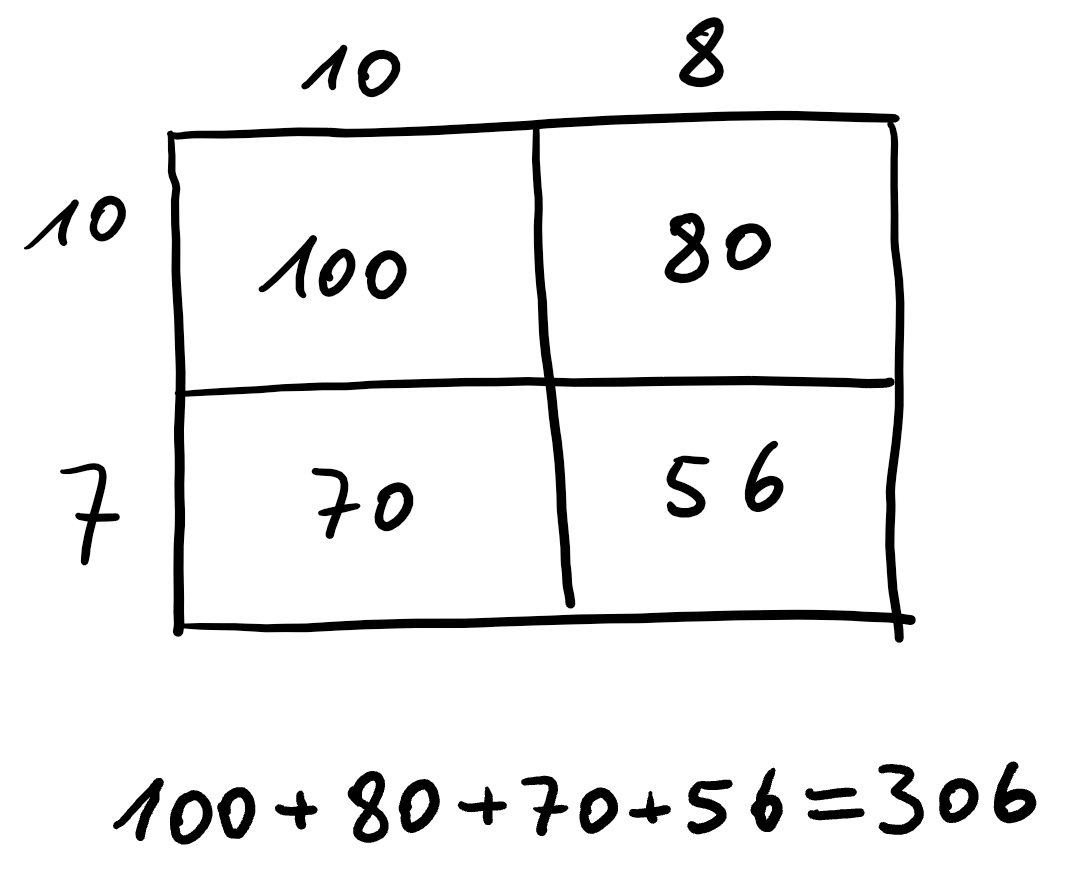 10 8
10 100 80
7 70 56
100+80+70+56=306